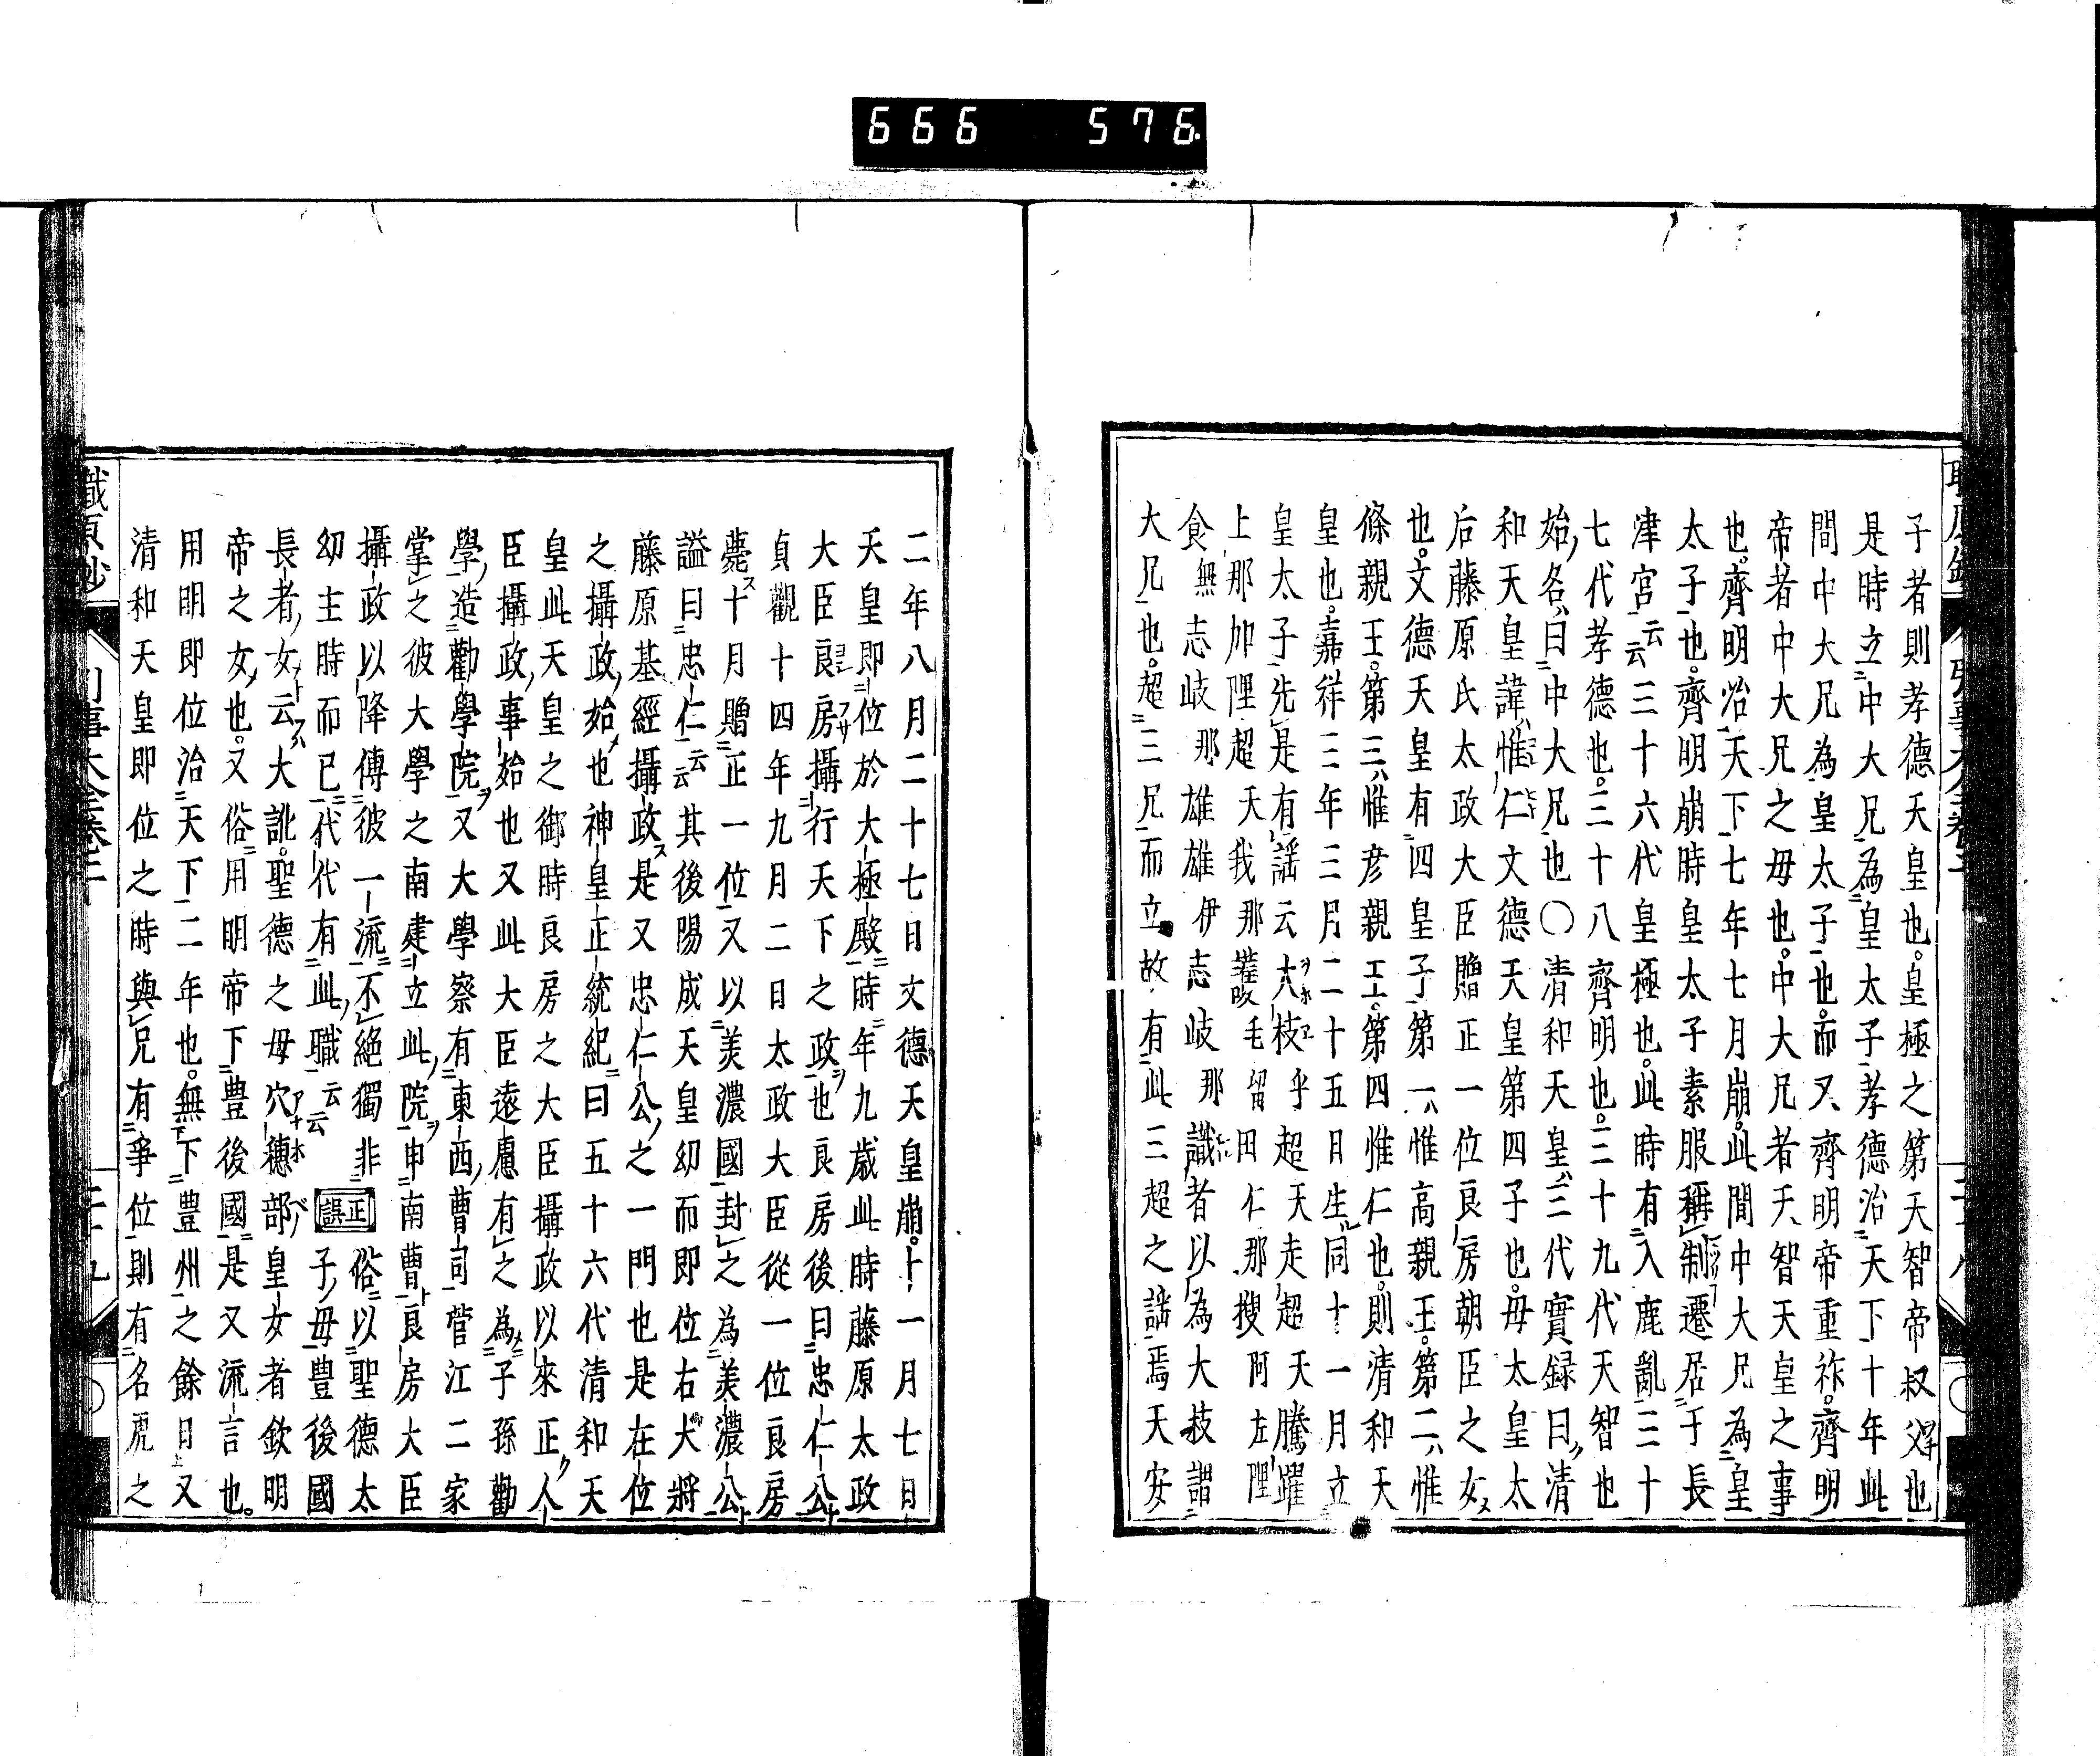 666 576
子者則孝德天皇也。皇極之第天智帝叔父也
是時立中大兄為皇太子孝德治天下十年此
間中大兄為皇太子也。而又齊明帝重祚。齊明
帝者中大兄之母也。中大兄者天智天皇之事
也。齊明治天下七年七月崩。此間中大兄為皇
太子也。齊明崩時皇太子素服稱制遷居于長
津宮云云三十六代皇極也。此時有入鹿亂三十
七代孝德也。三十八齊明也。三十九代天智也
始名曰中大兄也〇清和天皇三代實録曰清
和天皇諱惟仁文德天皇第四子也。母太皇太
后藤原氏太政大臣贈正一位良房朝臣之女
也。文德天皇有四皇子第一惟高親王。第二惟
條親王。第三惟彦親王。第四惟仁也。則清和天
皇也。嘉祥三年三月二十五日生同十一月立
皇太子先是有謡云大枝乎超天走超天騰躍
上那加哩超天我那護毛留田仁那搜阿左哩
食無志岐那雄雄伊志岐那識者以為大枝謂
大兄也。超三兄而立故有此三超之謡焉天安
二年八月二十七日文德天皇崩。十一月七日
天皇即位於大極殿時年九歳此時藤原太政
大臣良房攝行天下之政也良房後曰忠仁公
貞觀十四年九月二日太政大臣從一位良房
薨十月贈正一位又以美濃國封之為美濃公
謚曰忠仁云云其後陽成天皇幼而即位右大將
藤原基經攝政是又忠仁公之一門也是在位
之攝政始也神皇正統紀曰五十六代清和天
皇此天皇之御時良房之大臣攝政以來正人
臣攝政事始也又此大臣遠慮有之為子孫勸
學造勸學院又大學寮有東西曹司菅江二家
掌之彼大學之南建立此院申南曹良房大臣
攝政以降傳彼一流不絕獨非
幼主時而已代代有此職云云 正誤 俗以聖德太
子母豊後國
長者女云大訛。聖德之母穴穗部皇女者欽明
帝之女也。又俗用明帝下豊後國是又流言也。
用明即位治天下二年也。無下豊州之餘日又
清和天皇即位之時與兄有爭位則有名虎之
職原抄 引事大全卷二